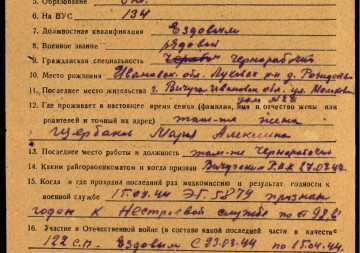 5. Образование
6. На ВУС 134
7. Должностная квалификация Ездовым
8. Военное звание рядовой
9. Гражданская специальность Чернорабочий
10. Место рождения Ивановск. обл. Пучежск р-н д.
11. Последнее место жительства г. Вичуга Ивановск обл. ул.
дом №28
12. Где проживает в настоящее время семья (фамилия, имя и отчество жены или
родителей и точный их адрес) там-же жена
Щербакова Марья Алексеевна
13. Последнее место работы и должность там-же Чернорабочий
14. Каким райгорвоенкоматом и когда призван Вичугским РВК 27.03.42
15. Когда и где проходил последний раз медкомиссию и результат годности к
военной службе 15.04.44 ЭГ 5879 признан
годен к Нестроевой службе по ст
16. Участие в Отечественной войне (в составе какой последней части и качестве
122 с.п. Ездовым с 23.03.44 по 15.04.44